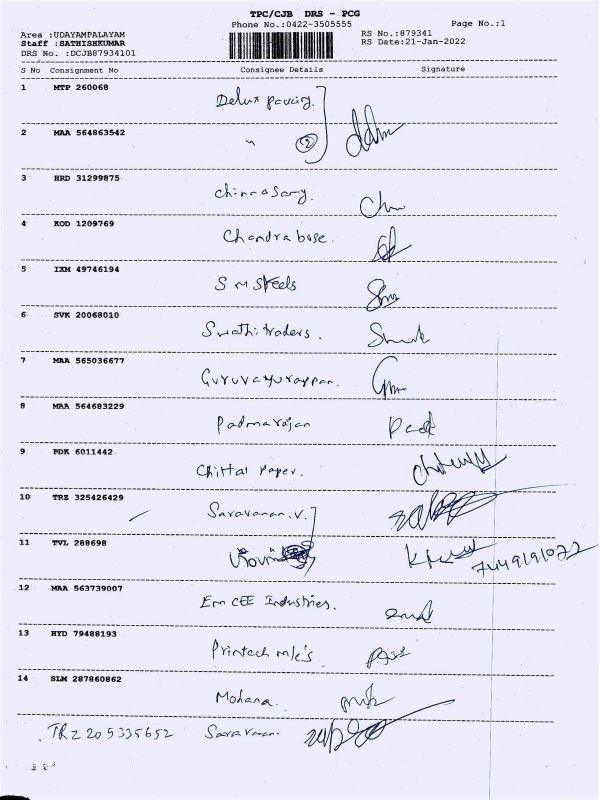 TPC/CJB DRS - PCG
Phone No.:0422-3505555 Page No.:1
Area :UDAYAMPALAYAM RS No.:879341
Staff :SATHISHKUMAR RS Date:21-Jan-2022
DRS No. :DCJB87934101
S No Consignment No Consignee Details Signature
1 MTP 260068 Delux
2 MAA 564863542 " 2
3 HRD 31299875 Chinnasamy.
4 KOD 1209769 Chandra bose.
5 IXM 49746194 S M Steels
6 SVK 20068010 Swathi traders.
7 MAA 565036677 Guruvayurappan.
8 MAA 564683229 Padmarajan
9 PDK 6011442 Chittal Paper.
10 TRZ 325426429 Saravanan.V.
11 TVL 288698
12 MAA 563739007 Em CEE Industries.
13 HYD 79488193 Printech m/c's
14 SLM 287860862 Mohana.
TRZ 205335652 Saravanan.